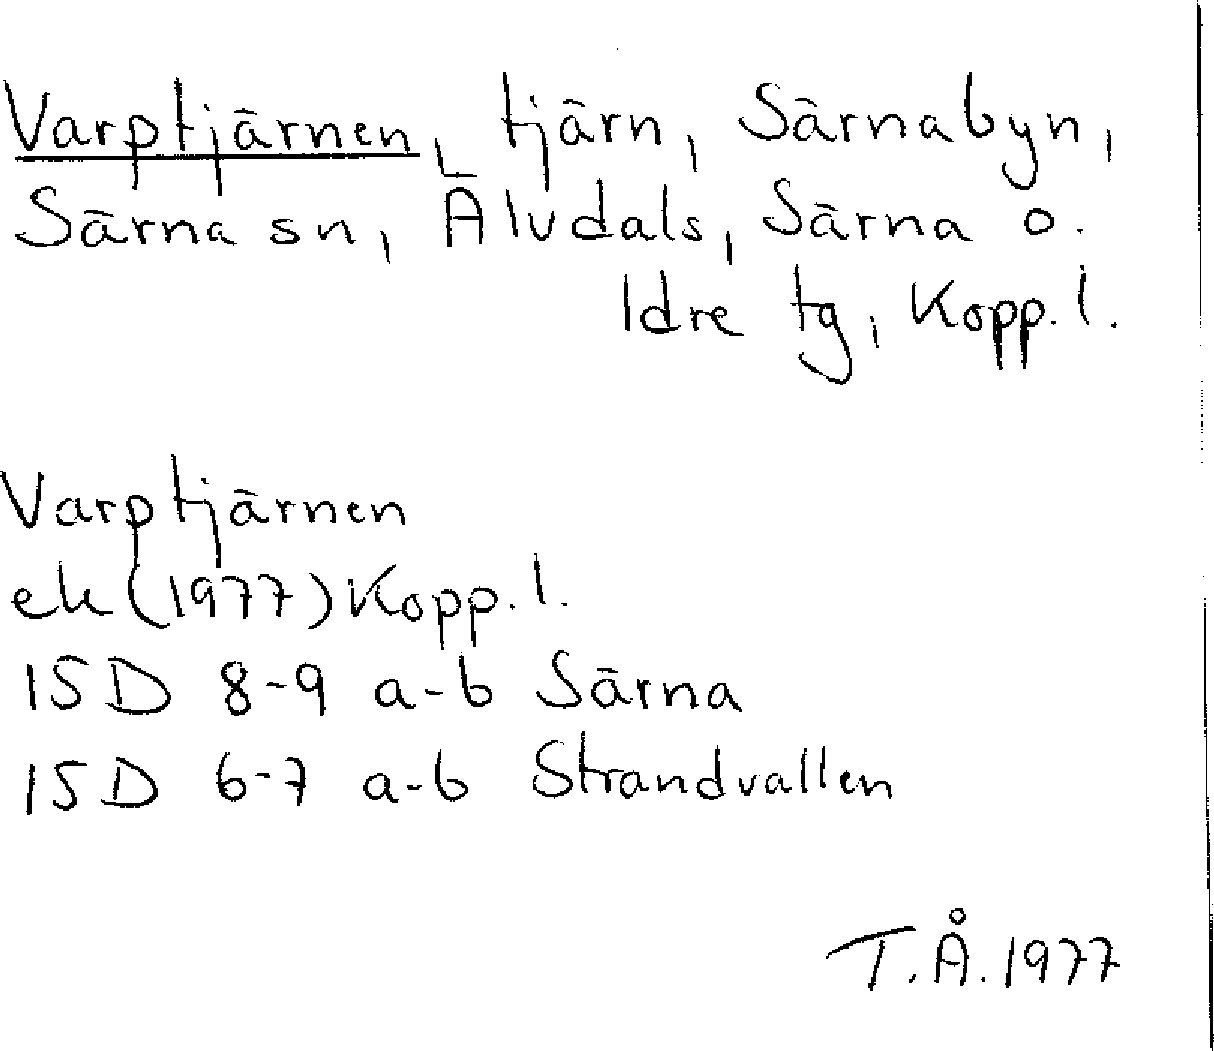 Varptjärnen, tjärn, Särnabyn,
Särna sn, Älvdals, Särna o.
Idre tg, Kopp. l.
Varptjärnen
ek (1977) Kopp. l.
15D 8-9 a-b Särna
15D 6-7 a-b Strandvallen
T.Å. 1977